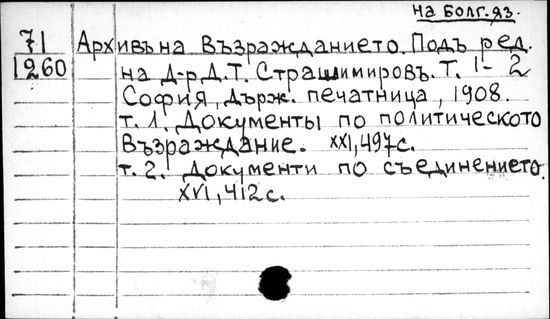 на болг.яз.
71 Архивъ на Възражданието. Подъ ред.
1260 на Д-р Д.Т. Страшимировъ. Т. 1- 2
София, държ. печатница, 1908.
т. 1. Документы по политическото
Възраждание. XXI, 497с.
т. 2. Документи по съединението.
XVI, 412с.